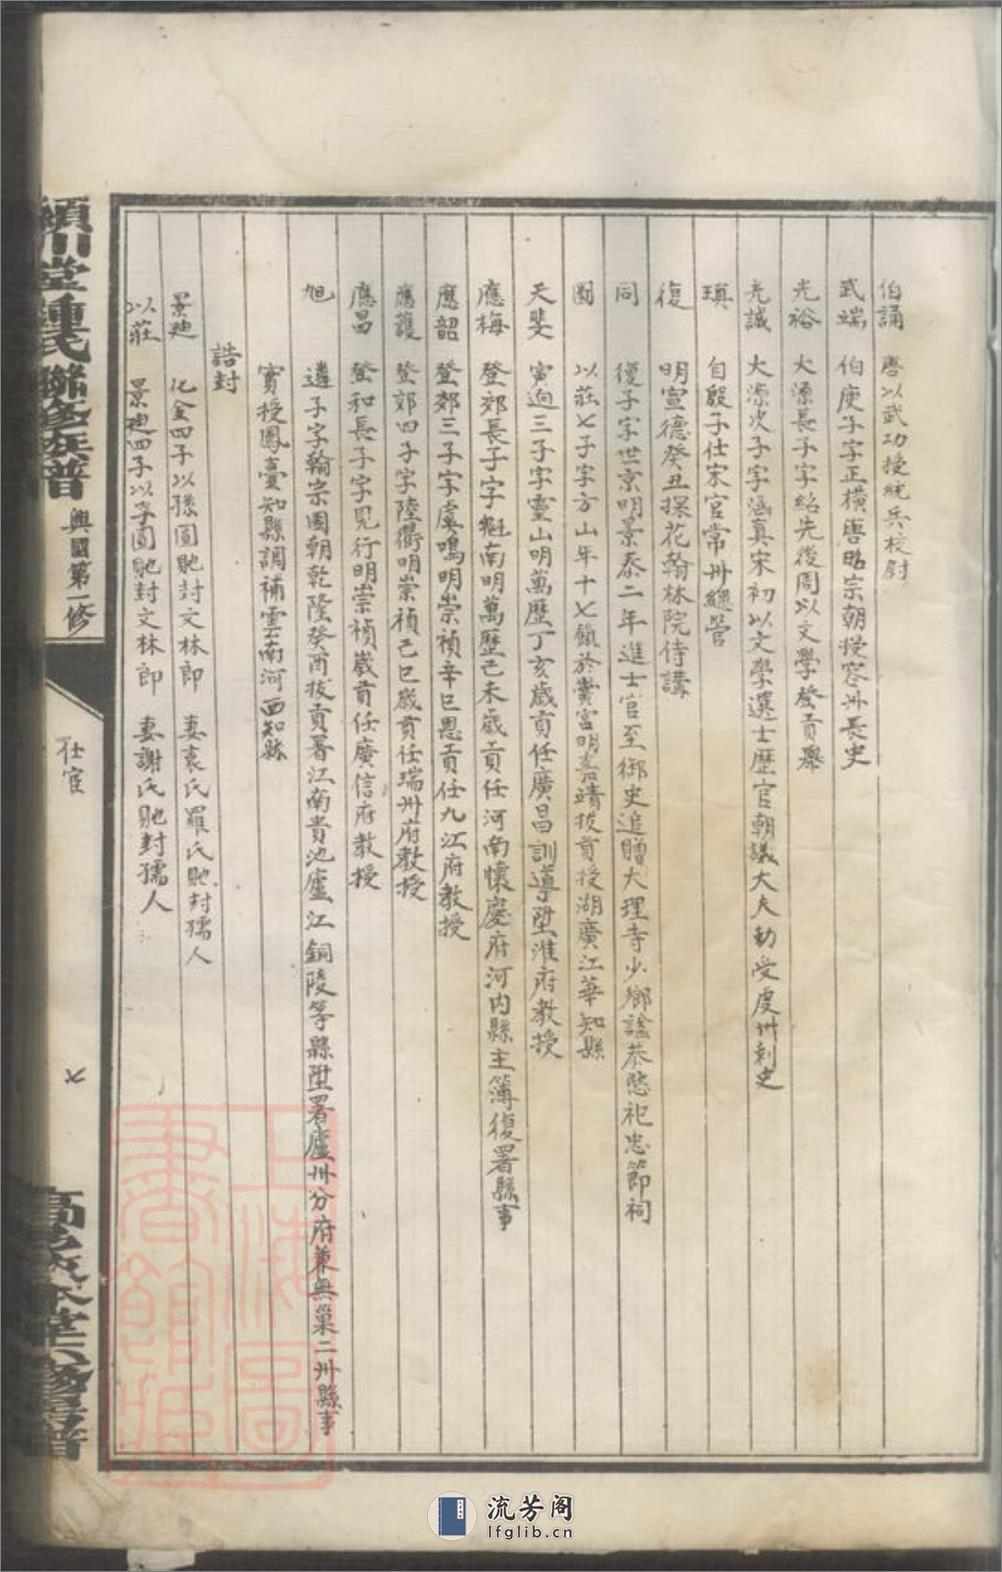 伯誦　唐以武功授統兵校尉
武端　伯庚子字正橫唐昭宗朝授容州長史
光裕　大源長子字紹先後周以文學登貢舉
光誠　大源次子字涵真宋初以文學選士歷官朝議大夫勅受虔州刺史
瑱　自殷子仕宋官常州總管
復　明宣德癸丑探花翰林院侍講
同　復子字世京明景泰二年進士官至御史追贈大理寺少卿謚恭愍祀忠節祠
圜　以莊七子字方山年十七餼於黌宮明嘉靖拔貢授湖廣江華知縣
天斐　寅逈三子字靈山明萬歷丁亥歲貢任廣昌訓導陞淮府教授
應梅　登郊長子字魁南明萬歷己未歲貢任河南懷慶府河內縣主簿復署縣事
應韶　登郊三子字虞鳴明崇禎辛巳恩貢任九江府教授
應護　登郊四子字陸衢明崇禎己巳歲貢任瑞州府教授
應昌　登和長子字見行明崇禎歲貢任廣信府教授
旭　遴子字翰宗國朝乾隆癸酉拔貢署江南貴池廬江銅陵等縣陞署廬州分府兼無巢二州縣事
實授鳳臺知縣調補雲南河西知縣
誥封
景廸　化金四子以孫圓貤封文林郎　妻袁氏羅氏貤封孺人
以莊　景廸四子以子圓貤封文林郎　妻謝氏貤封孺人
潁川堂鍾氏聯修族譜　興國第一修
仕宦
七
上海圖書館藏
流芳阁
lfglib.cn